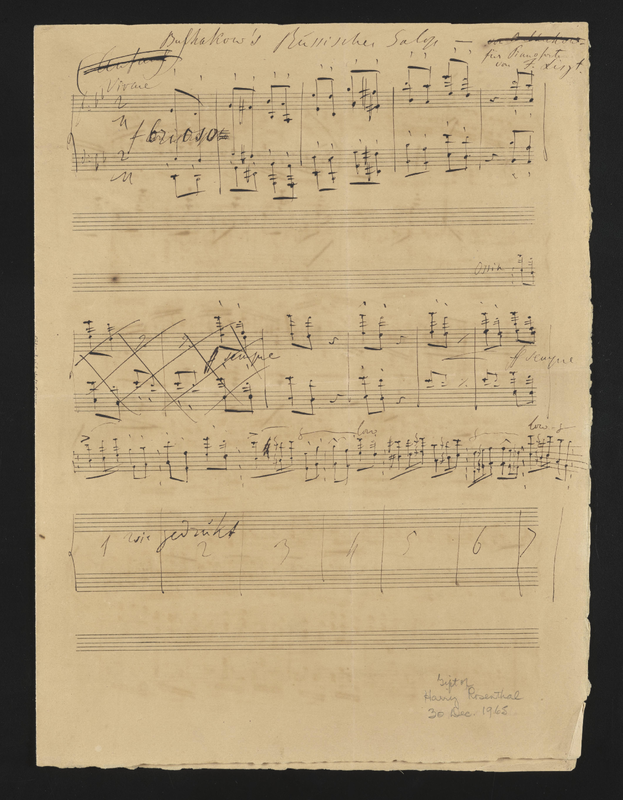 Bulhakow's Russischer Galop —
für Pianoforte
von F. Liszt.
(Anfang)
Vivace
f brioso
Ossia
sempre
f sempre
8
long 8
1 wie gedrukt 2 3 4 5 6 7
Gift of
Harry Rosenthal
30 Dec. 1965